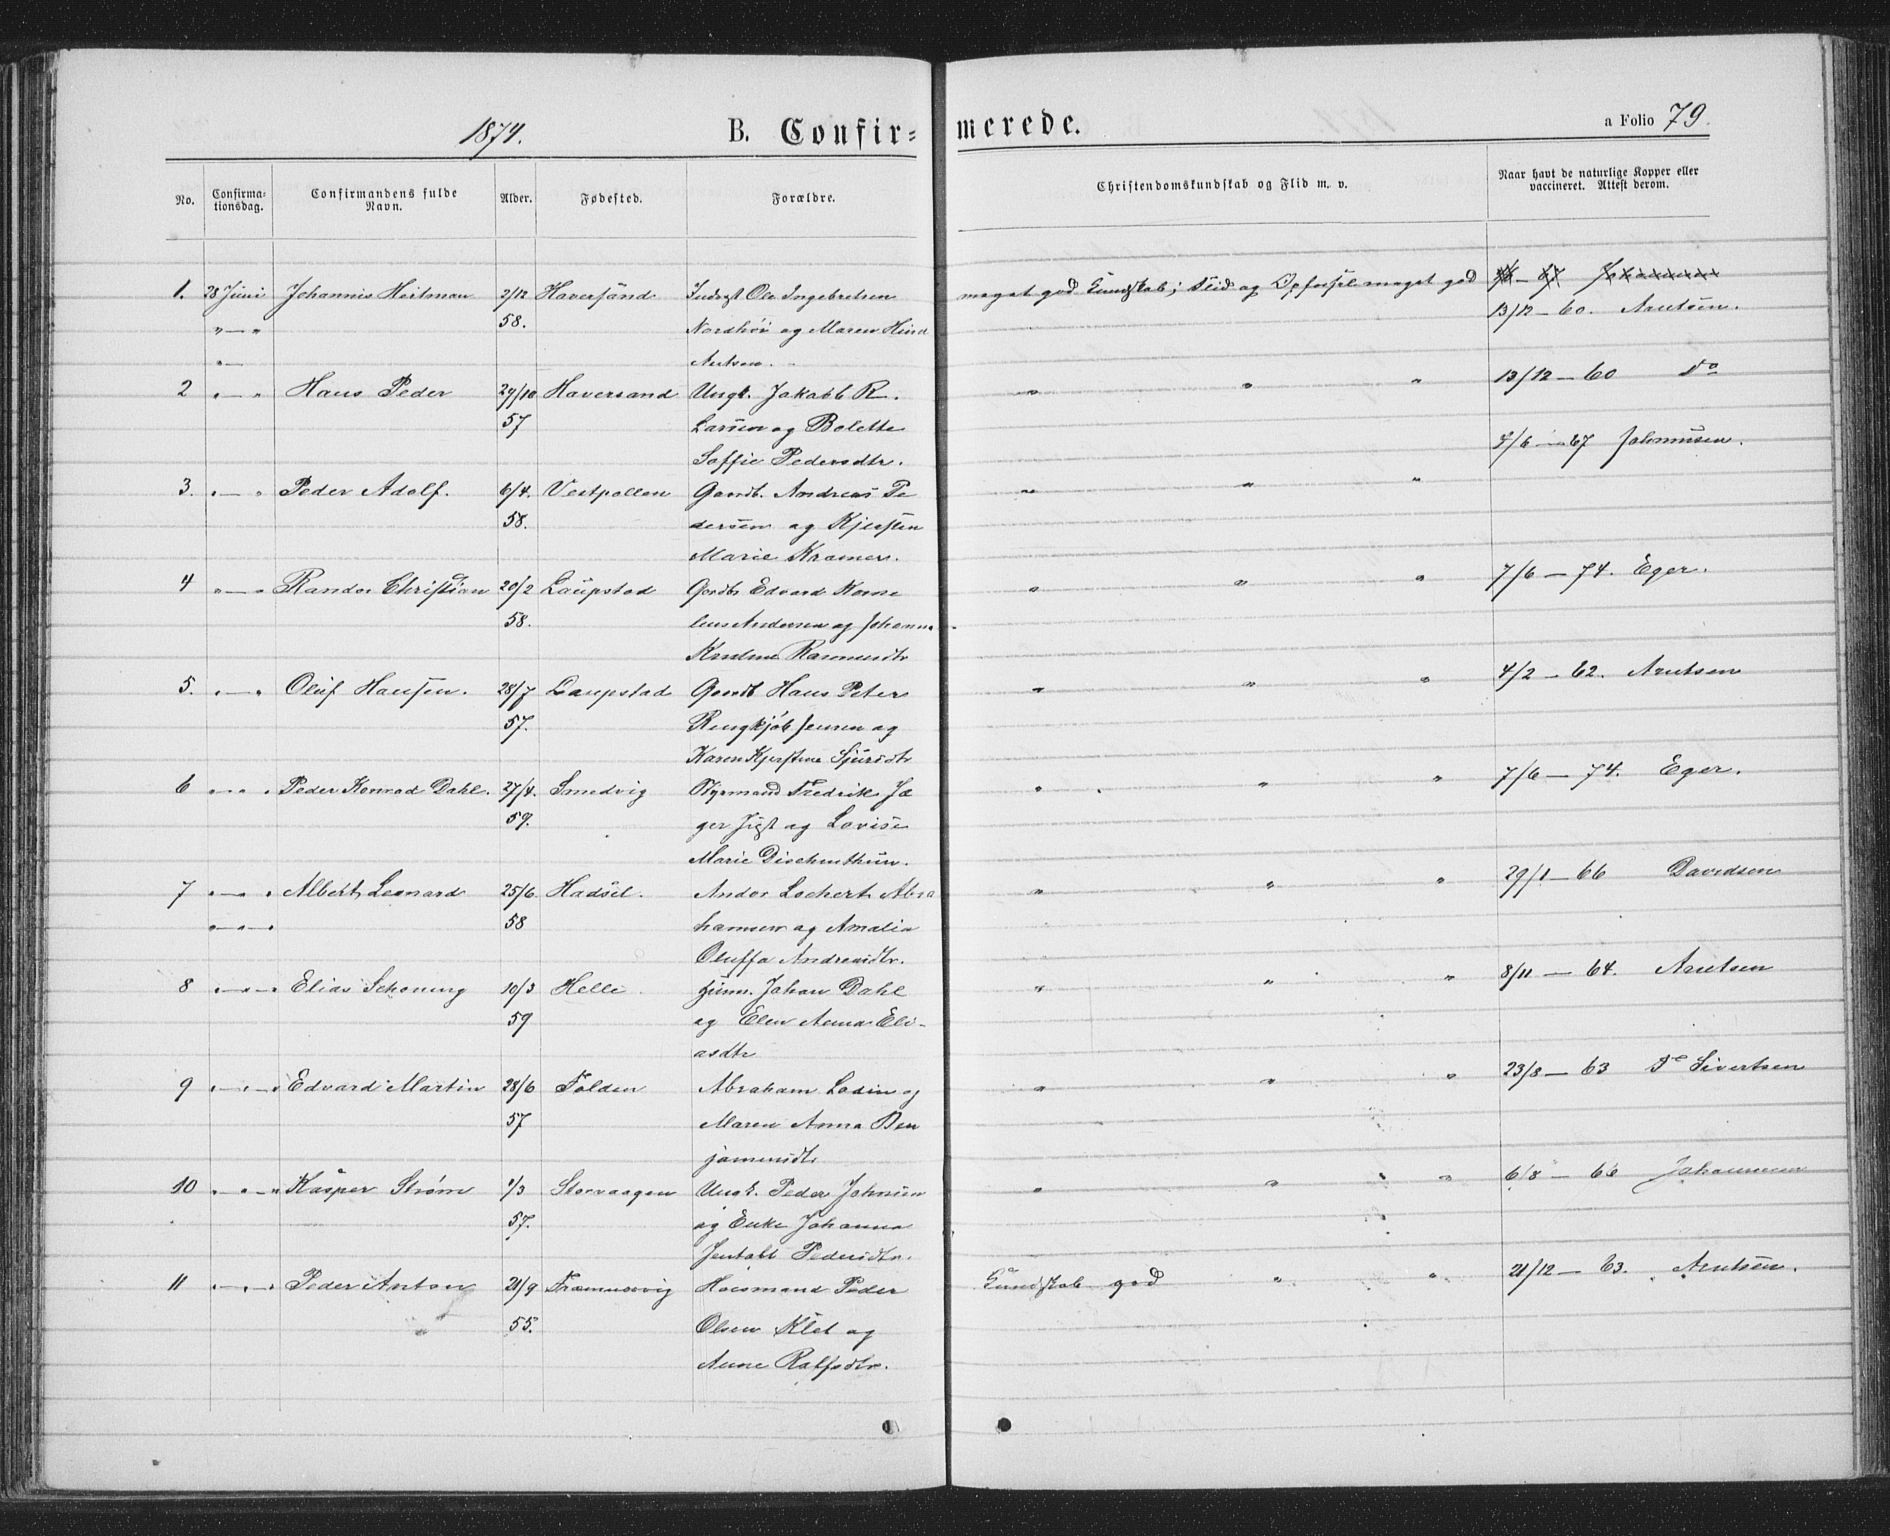 1874. B. Confir= merede. a Folio 79.
No. Confirma-tionsdag. Confirmandens fulde Navn. Alder. Fødested. Forældre. Christendomskundskab og Flid m. v. Naar havt de naturlige Kopper eller vaccineret. Attest derom.
1. 28 Juni Johannis Heitman 2/12 Haversand Ole Ingebretsen meget god Kundskab; Flid og Opførsel meget god
" — " 58. Nordhöi og Maren Hind 13/12 — 60. Arntsen.
" — Antsen.
2 " — " Hans Peder 29/10 Haversand Ungk. Jakob R. " " " 13/12 — 60 Do
57 Larsen og Bolette
Soffie Pedersdtr. 4/6 — 67 Johannesen.
3. " — " Peder Adolf. 6/4. Vestpollen Gaardb. Andreas Pe " " "
58. dersen og Kjersten
Marie Kramer.
4 " — " Randor Christian 20/2 Laupstad Gaardbr Edvard Korne " " " 7/6 — 74. Eger.
58. lius Andersen og Johanna
Rasmusdtr
5. " — " Oluf Hansen. 28/7 Laupstad Gaardb Hans Peter " " " 4/2 — 62. Arntsen
57. Ringkjöb Jensen og
Karen Kjerstine Sjursdtr
6 " — " Peder Konrad Dahl. 27/4. Smedvig Styrmand Fredrik Jæ " " " 7/6 — 74. Eger.
59. ger og Lovise
Marie Dischinthun.
7 " — " Albert Leonard 25/6. Hadsel. Andor Lockert Abra " " " 29/1 — 66 Davidsen
" — " 58 hamsen og Amalia
Oluffa Andreasdtr.
8 " — " Elias Schøning 10/3 Helle Johan Dahl " " " 8/11 — 64. Arntsen
59 og Elen Anna Eli-
asdtr
9 " — " Edvard Martin 28/6 Folden Abraham Ledin og " " " 23/8 — 63 Sivertsen
57 Maren Anna Ben
jaminsdtr
10 " — " Kasper Strøm 1/3 Storvaagen Ungk. Peder Johnsen " " " 6/8 — 66 Johannesen
57. og Enke Johanna
Jentoft Pedersdtr.
11 " — " Peder Anton 21/9 Framnesvig Huusmand Peder Kundskab god " " 21/12 — 63. Arntsen.
55. Olsen Klet og
Anne Rolfsdtr.